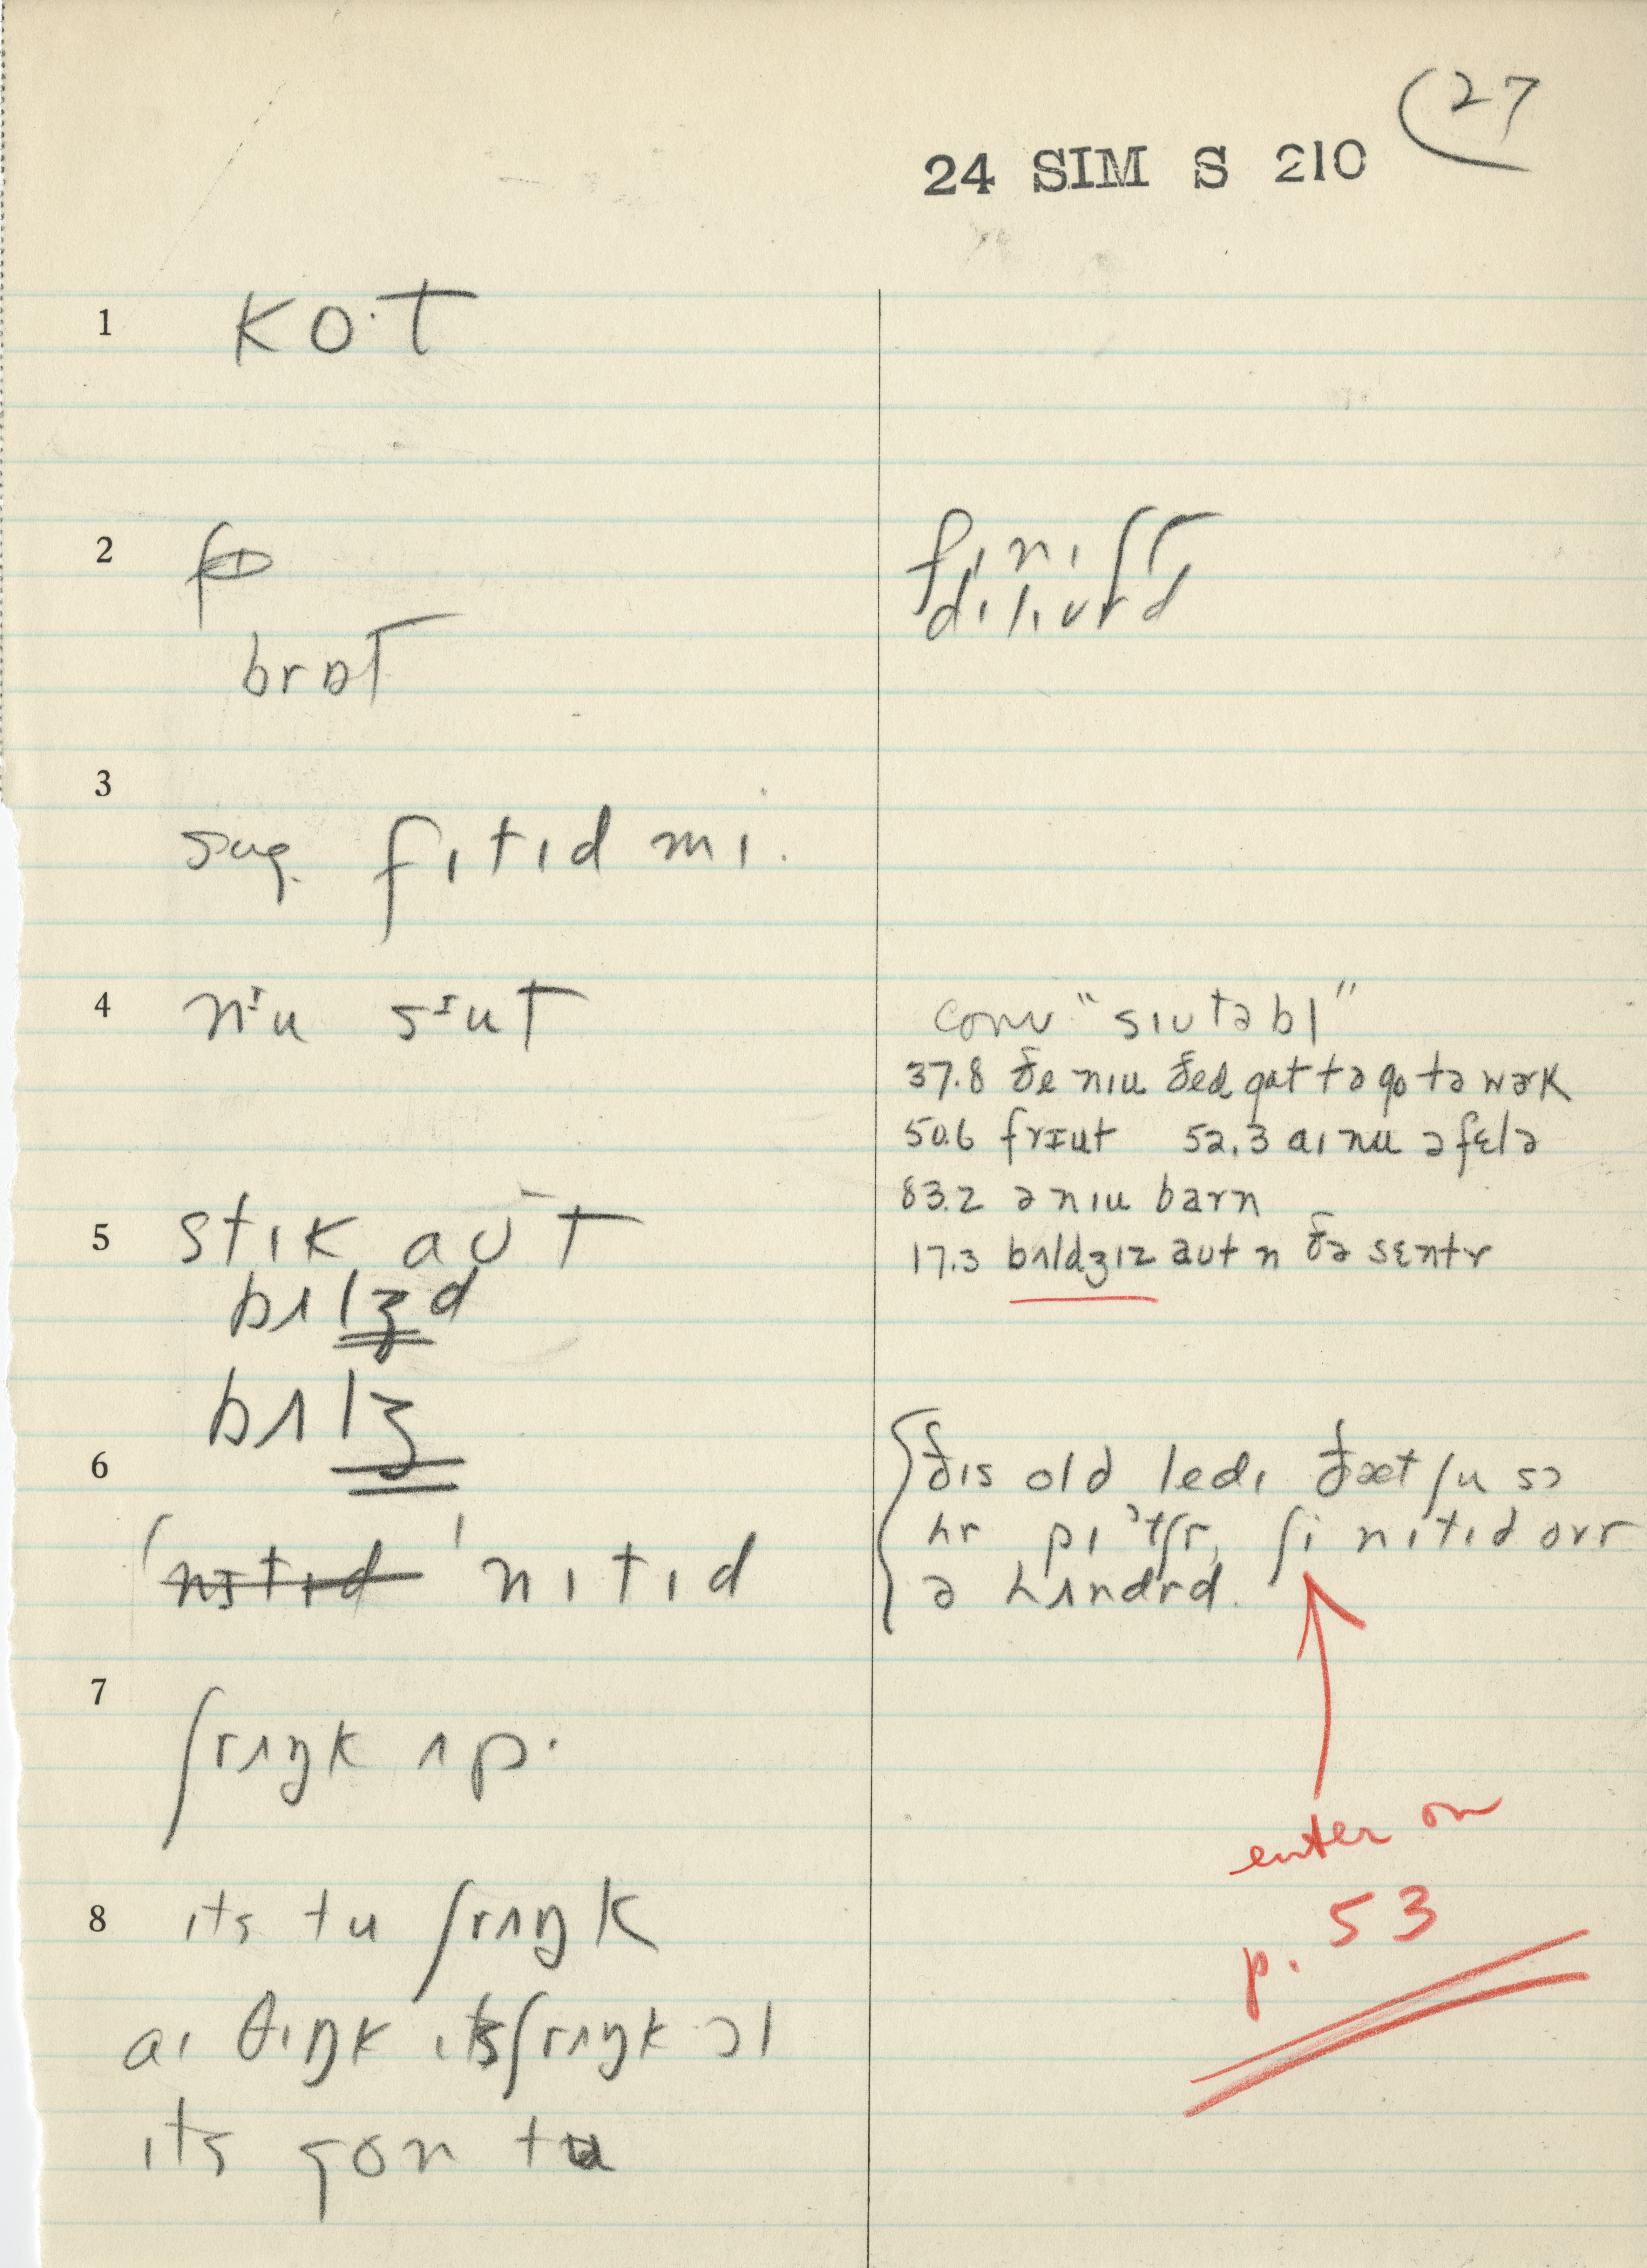 (27
24 SIM S 210
1 ko·t
2
brɒt
fɪnɪʃt
dɪlɪvrd
3
sug. fɪtɪd mɪ.
4 nᶦu sᶦut
conv "sɪutəbl"
37.8 ðe nɪu ðed gat tə go tə wərk
50.6 frɪut 52.3 aɪ nu ə fɛlə
83.2 ə nɪu barn
17.3 bʌldʒɪz aut n ðə sɛntr
5 stɪk aut
bʌlʒd
bʌlʒ
6
nɪtɪd 'nɪtɪd
ðɪs old ledɪ ðæt ʃu sɔ
hr pɪᵊtʃr, ʃi nɪtɪd ovr
ə hʌndrd.
7
ʃrʌŋk ʌp·
enter on
p. 53
8 ɪts tu ʃrʌŋk
aɪ θɪŋk ɪts ʃrʌŋk ɔl
ɪts gon tu